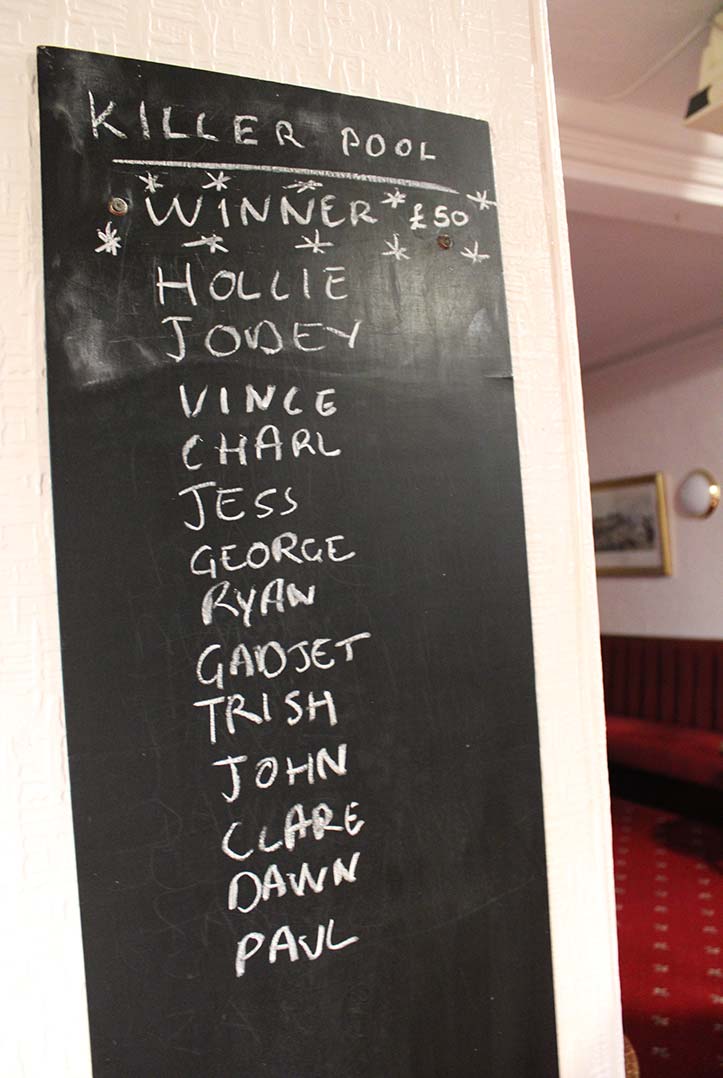 KILLER POOL
WINNER £50
HOLLIE
JODEY
VINCE
CHARL
JESS
GEORGE
RYAN
GADJET
TRISH
JOHN
CLARE
DAWN
PAUL